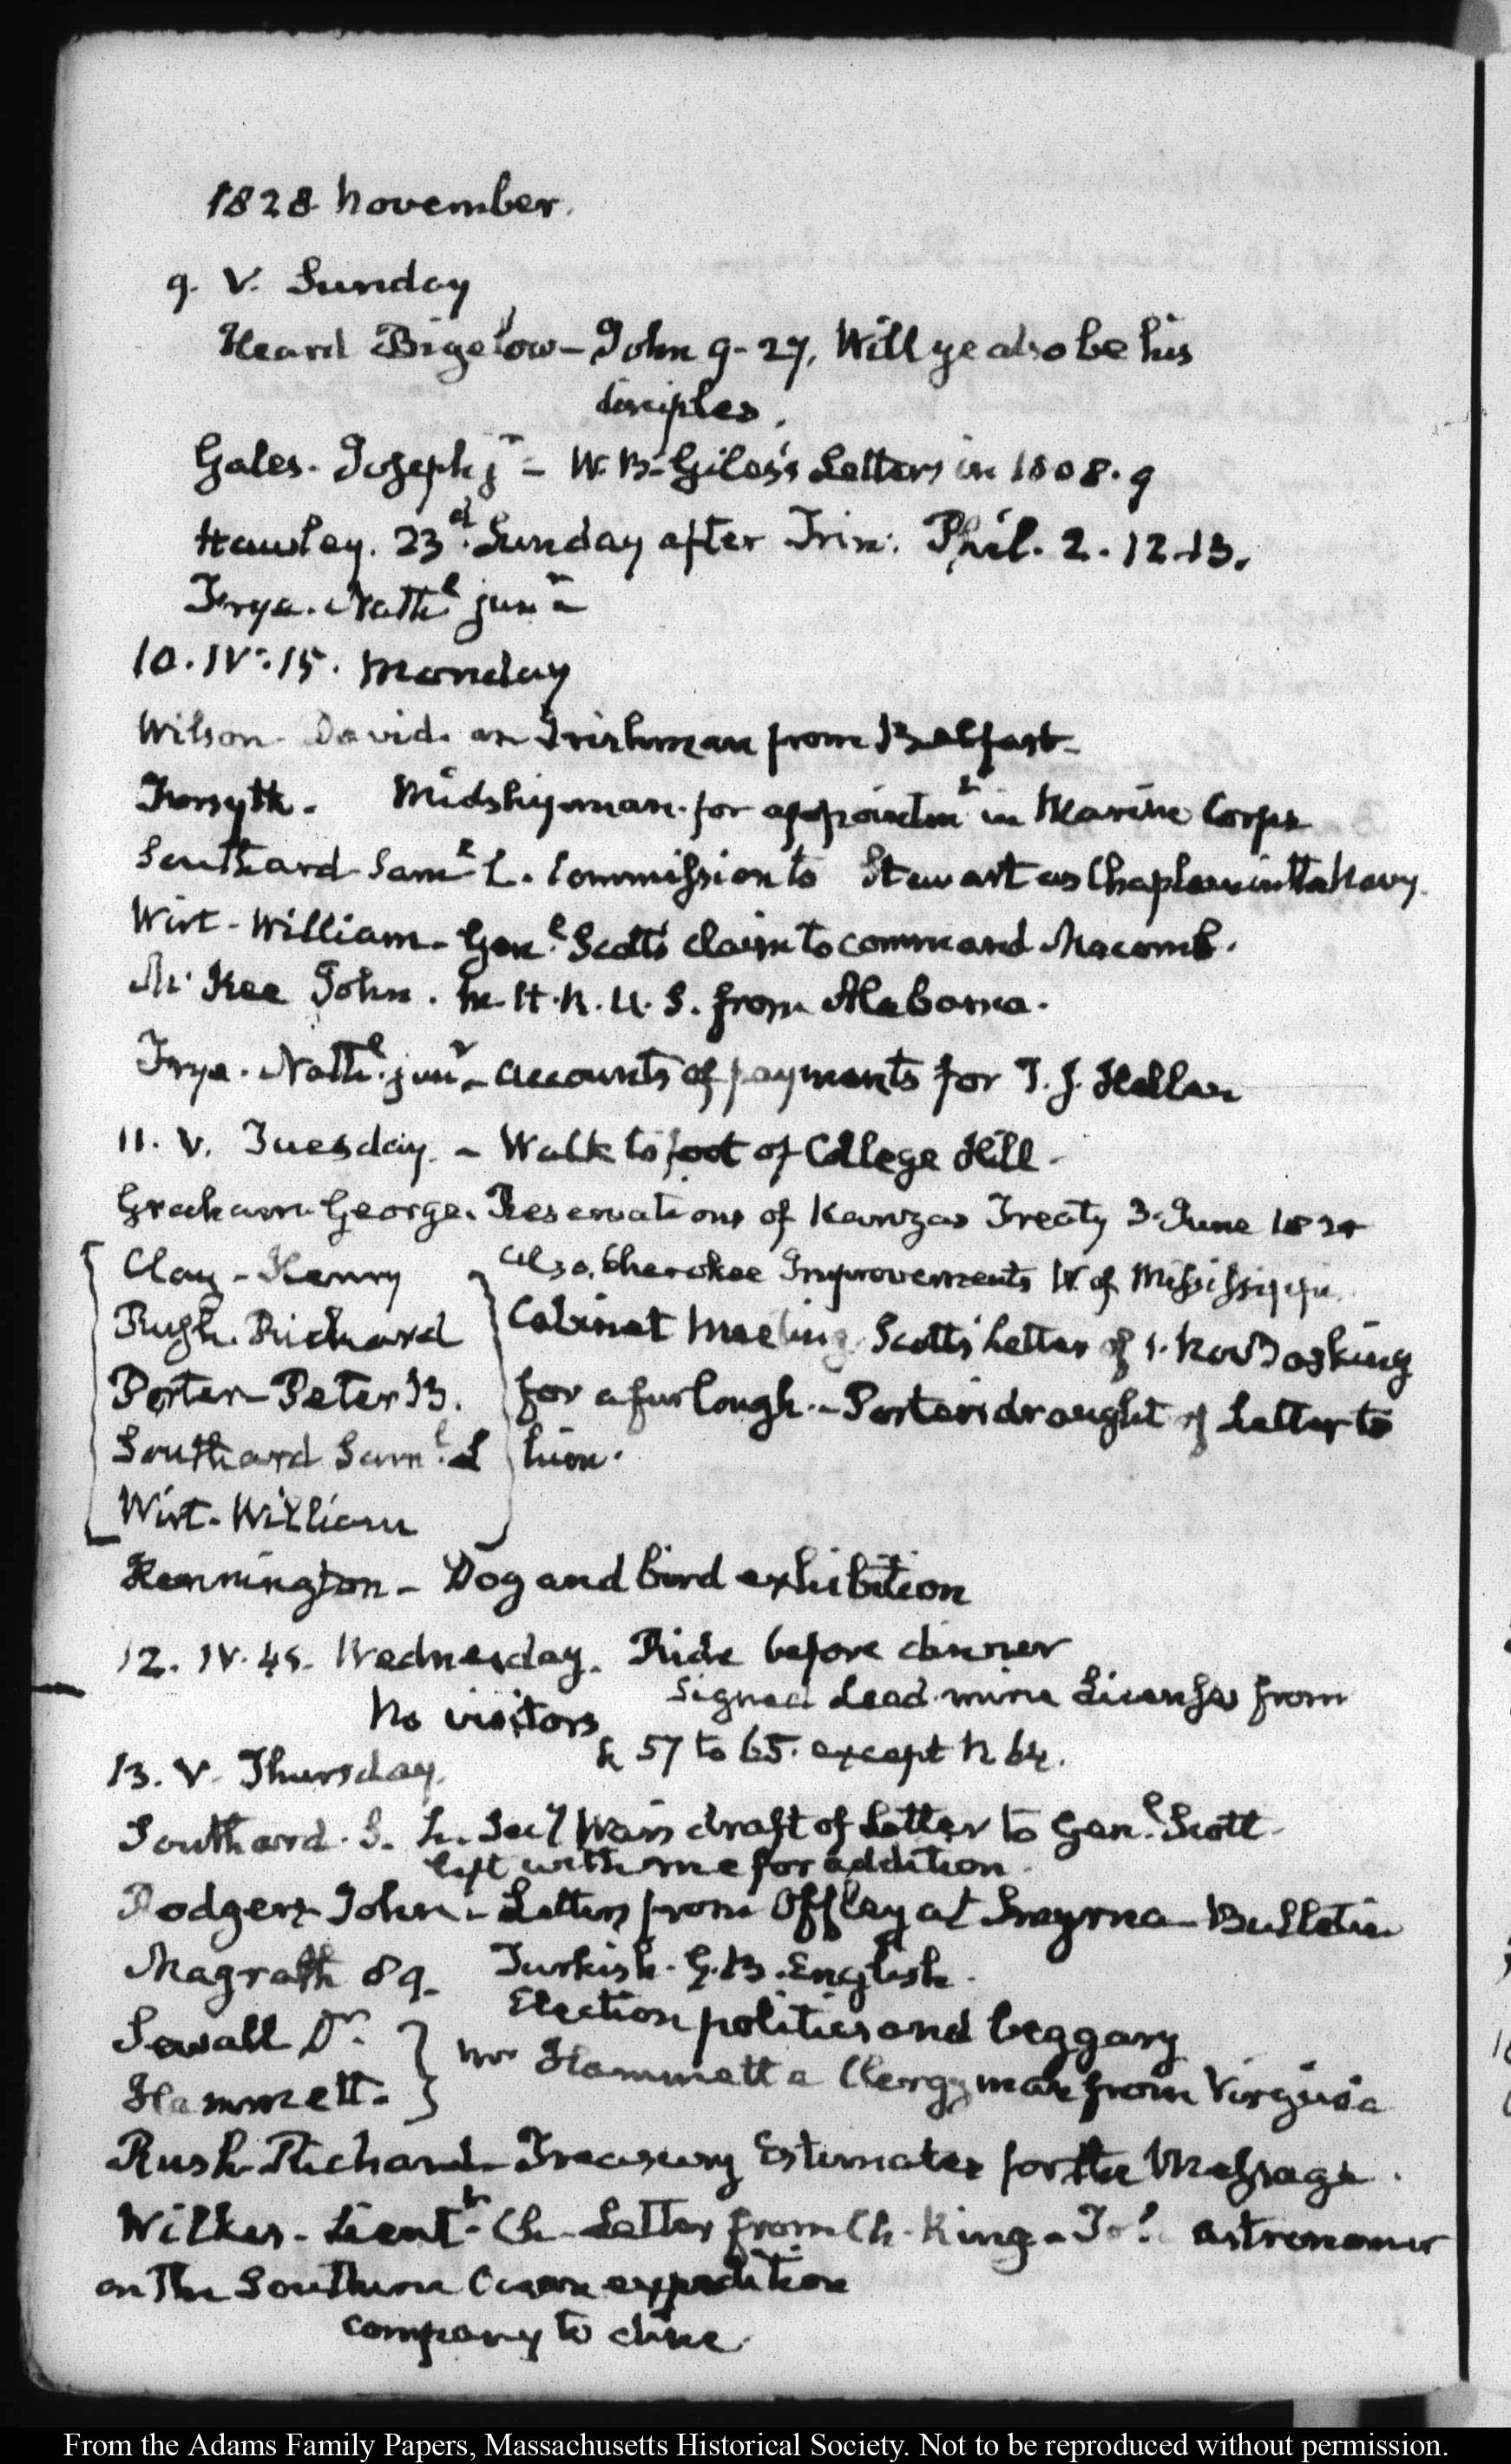 1828 November.
9. V. Sunday
Heard Bigelow – John 9-27. Will ye also be his
disciples.
Gales. Joseph jr – W. B. Giles's Letters in 1808.9
Hawley. 23d. Sunday after Trin: Phil. 2. 12.13.
Frye. Nathl junr
10. IV:15. Monday
Wilson David. an Irishman from Belfast –
Forsyth. Midshipman. for appointmt in Marine Corps
Southard Saml L. Commission to Stewart as Chaplain in the Navy.
Wirt – William – Genl Scott's claim to command Macomb.
McKee John. M.H.R.U.S. from Alabama.
Frye. Nathl. junr – accounts of payments for T. J. Hellen
11. V. Tuesday. – Walk to foot of College Hill –
Graham George. Reservations of Kanzas Treaty 3 June 1825
Clay – Henry
also, Cherokee Improvements W. of Mississippi.
Rush. Richard
Cabinet Meeting Scott's Letter of 1. Novr asking
Porter – Peter B.
for a furlough. – Porter's draught of Letter to
Southard Saml. L
him.
Wirt. William
Hennington – Dog and bird exhibition
12. IV. 45. Wednesday. Ride before dinner
No visitors
Signed Lead mine Licenses from
N 57 to 65. except N 64.
13. V. Thursday.
Southard. S. L. Secy War's draft of Letter to Genl. Scott –
left with me for addition.
Rodgers John – Letters from Offley at Smyrna – Bulletin
Turkish. G. B. English.
Magrath 89.
Election politics and beggary
Sewall Dr.
Mr Hammett a Clergyman from Virginia
Hammett.
Rush Richard – Treasury Estimates for the Message.
Wilkes – Lieutt Ch – Letter from Ch. King – astronomer
on the Southern Ocean expedition
company to dine
From the Adams Family Papers, Massachusetts Historical Society. Not to be reproduced without permission.